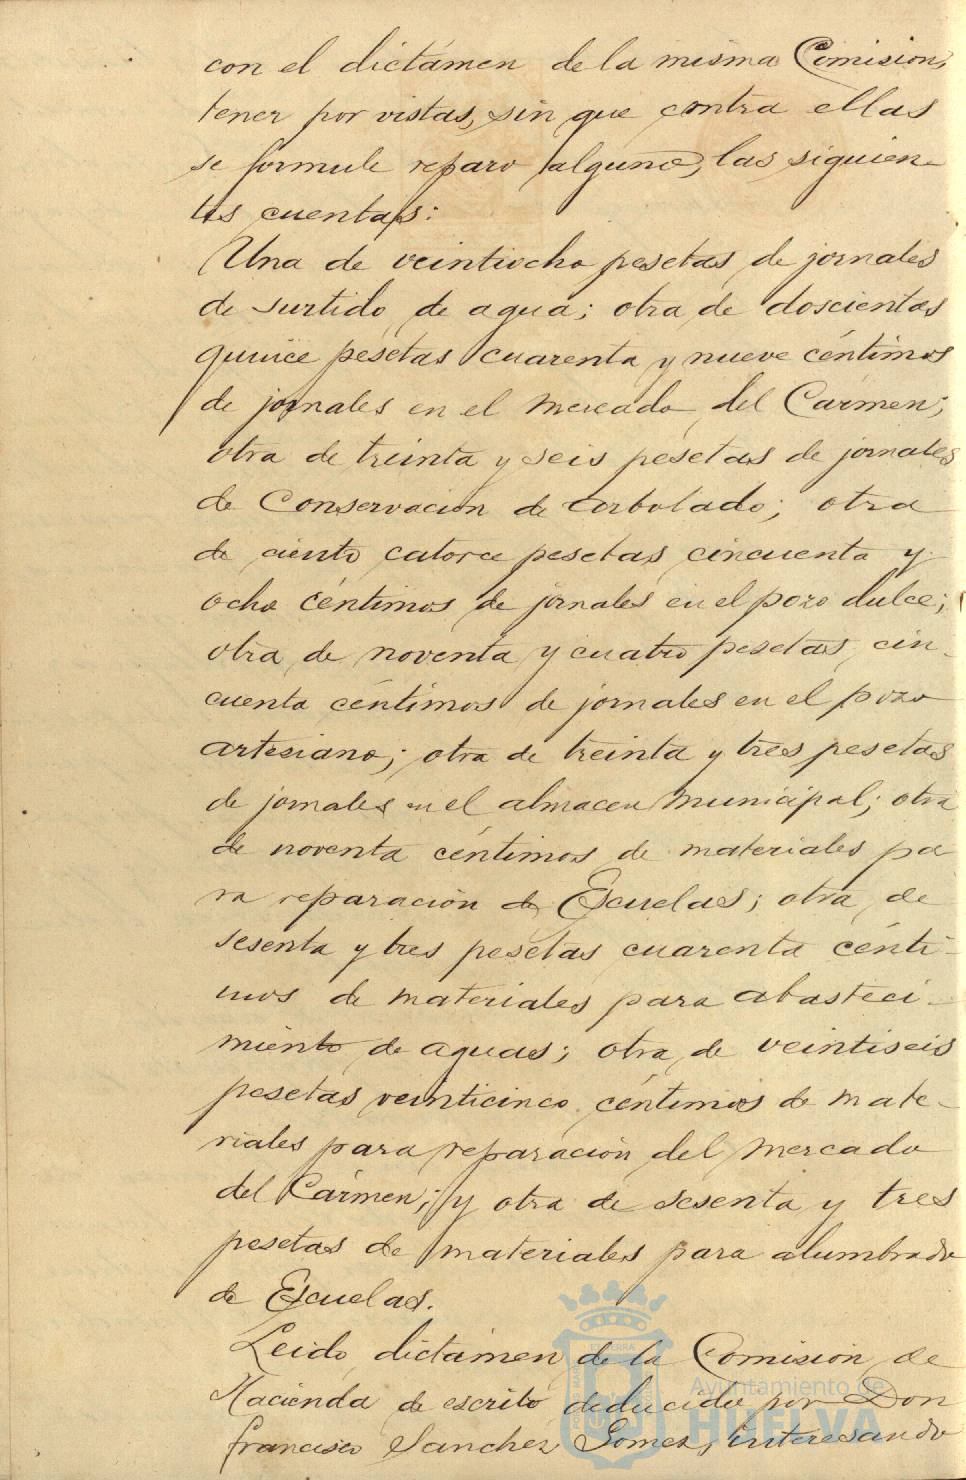 con el dictámen de la misma Comision,
tener por vistas, sin que contra ellas
se formule reparo alguno, las siguien-
tes cuentas:
Una de veintiocho pesetas de jornales
de surtido de agua; otra de doscientas
quince pesetas cuarenta y nueve céntimos
de jornales en el mercado del Cármen;
otra de treinta y seis pesetas de jornales
de Conservacion de arbolado; otra
de ciento catorce pesetas cincuenta y
ocho céntimos de jornales en el pozo dulce;
otra de noventa y cuatro pesetas cin-
cuenta céntimos de jornales en el pozo
artesiano; otra de treinta y tres pesetas
de jornales en el almacen municipal; otra
de noventa céntimos de materiales pa
ra reparación de Escuelas; otra de
sesenta y tres pesetas cuarenta cénti-
mos de materiales para abasteci-
miento de aguas; otra de veintiseis
pesetas veinticinco céntimos de mate-
riales para reparación del mercado
del Cármen; y otra de sesenta y tres
pesetas de materiales para alumbrado
de Escuelas.
Leido dictámen de la Comision de
Hacienda de escrito deducido por Don
francisco Sanchez Gomez, interesando
Ayuntamiento de
HUELVA